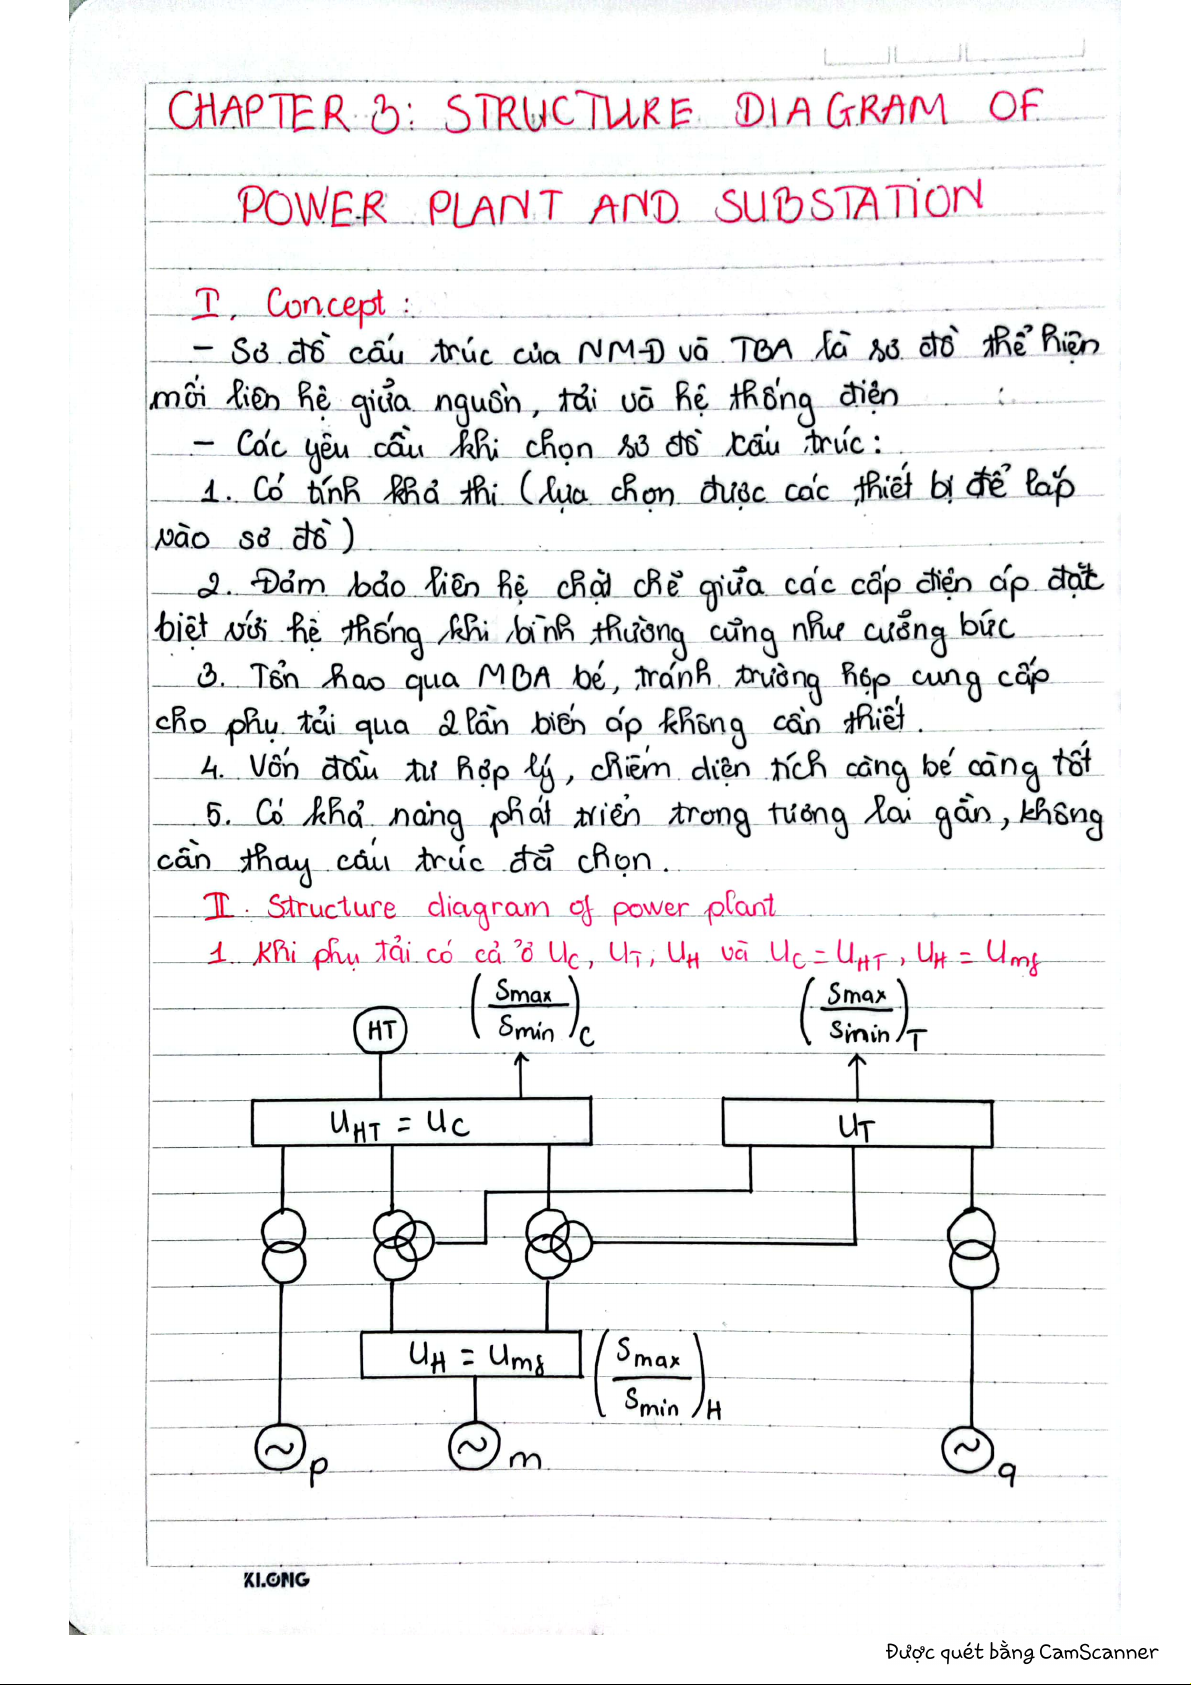 CHAPTER 3: STRUCTURE DIAGRAM OF
POWER PLANT AND SUBSTATION
I. Concept:
- Sơ đồ cấu trúc của NMĐ và TBA là sơ đồ thể hiện
mối liên hệ giữa nguồn, tải và hệ thống điện
- Các yêu cầu khi chọn sơ đồ cấu trúc:
1. Có tính khả thi (lựa chọn được các thiết bị để lắp
vào sơ đồ)
2. Đảm bảo liên hệ chặt chẽ giữa các cấp điện áp đặt
biệt với hệ thống khi bình thường cũng như cưỡng bức
3. Tổn hao qua MBA bé, tránh trường hợp cung cấp
cho phụ tải qua 2 lần biến áp không cần thiết.
4. Vốn đầu tư hợp lý, chiếm diện tích càng bé càng tốt
5. Có khả năng phát triển trong tương lai gần, không
cần thay cấu trúc đã chọn.
II. Structure diagram of power plant
1. Khi phụ tải có cả ở UC, UT, UH và UC = UHT, UH = Umf
HT (Smax/Smin)C (Smax/Smin)T
UHT = UC UT
UH = Umf (Smax/Smin)H
~ p ~ m ~ q
KLONG
Được quét bằng CamScanner